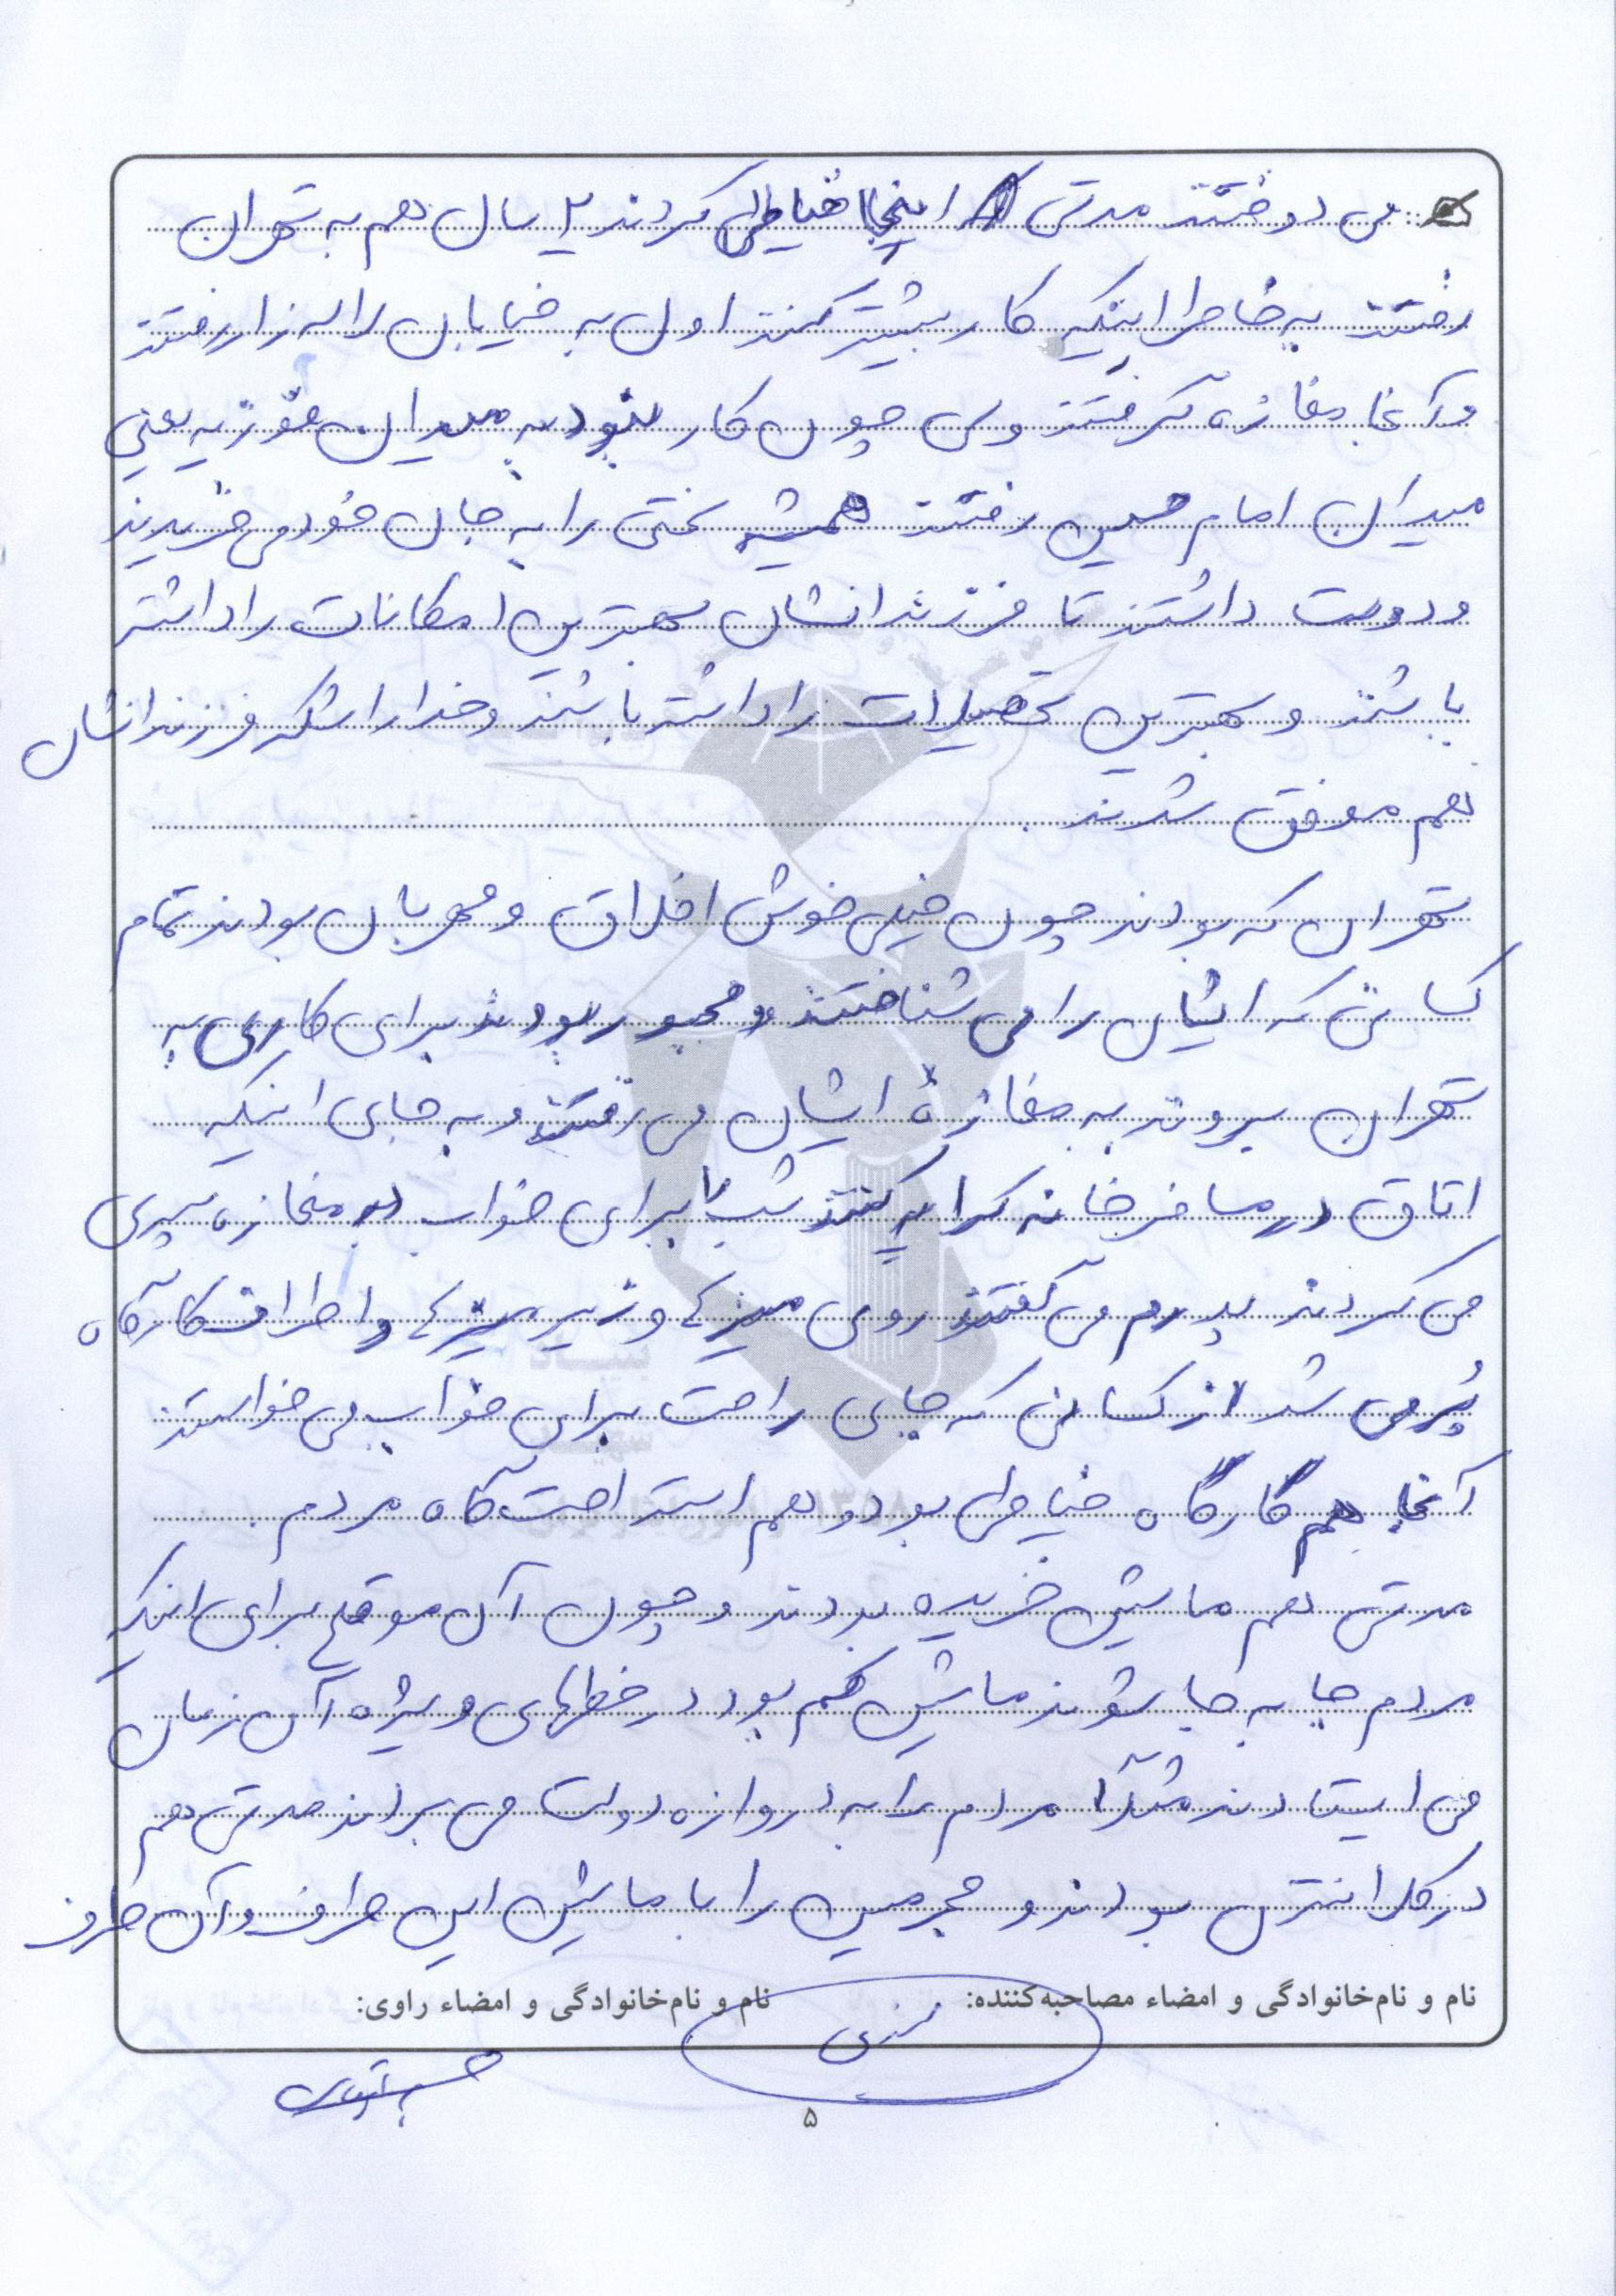 می دوختند مدتی اینجا خیاطی کردند ۲ سال هم به تهران
رفتند به خاطر اینکه کار بیشتر کنند اول به خیابان لاله زار رفتند
و آنجا مغازه گرفتند ولی چون کار نبود به میدان فوزیه یعنی
میدان امام حسین رفتند همیشه سختی را به جان خود می خریدند
و دوست داشتند تا فرزندانشان بهترین امکانات را داشته
باشند و بهترین تحصیلات را داشته باشند و خدا را شکر فرزندانشان
هم موفق شدند.
تهران که بودند چون خیلی خوش اخلاق و مهربان بودند تمام
کسانی که ایشان را می شناختند و مجبور بودند برای کاری به
تهران بروند به مغازهٔ ایشان می رفتند و به جای اینکه
اتاق در مسافرخانه کرایه کنند شب برای خواب در مغازه سپری
می کردند پدرم می گفتند روی میز و زیر میز و اطراف کارگاه
پُر می شد از کسانی که جای راحت برای خواب می خواستند
آنجا هم کارگاه خیاطی بود و هم استراحت گاه مردم.
مدتی هم ماشین خریده بودند و چون آن موقع برای اینکه
مردم جا به جا شوند ماشین کم بود در خطهای ویژه آن زمان
می ایستادند مثلاً مردم را به دروازه دولت می بردند مدتی هم
در کلانتری بودند و مجرمین را با ماشین این طرف و آن طرف
نام و نام‌خانوادگی و امضاء مصاحبه‌کننده: نام و نام‌خانوادگی و امضاء راوی:
۵